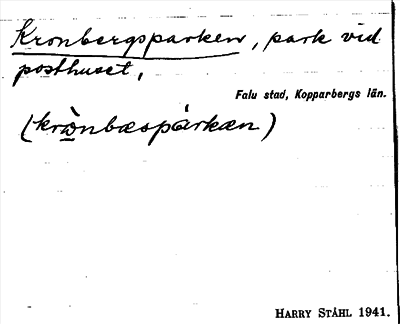 Kronbergsparken, park vid
posthuset,
Falu stad, Kopparbergs län.
(krònbæspárkæn)
HARRY STÅHL 1941.